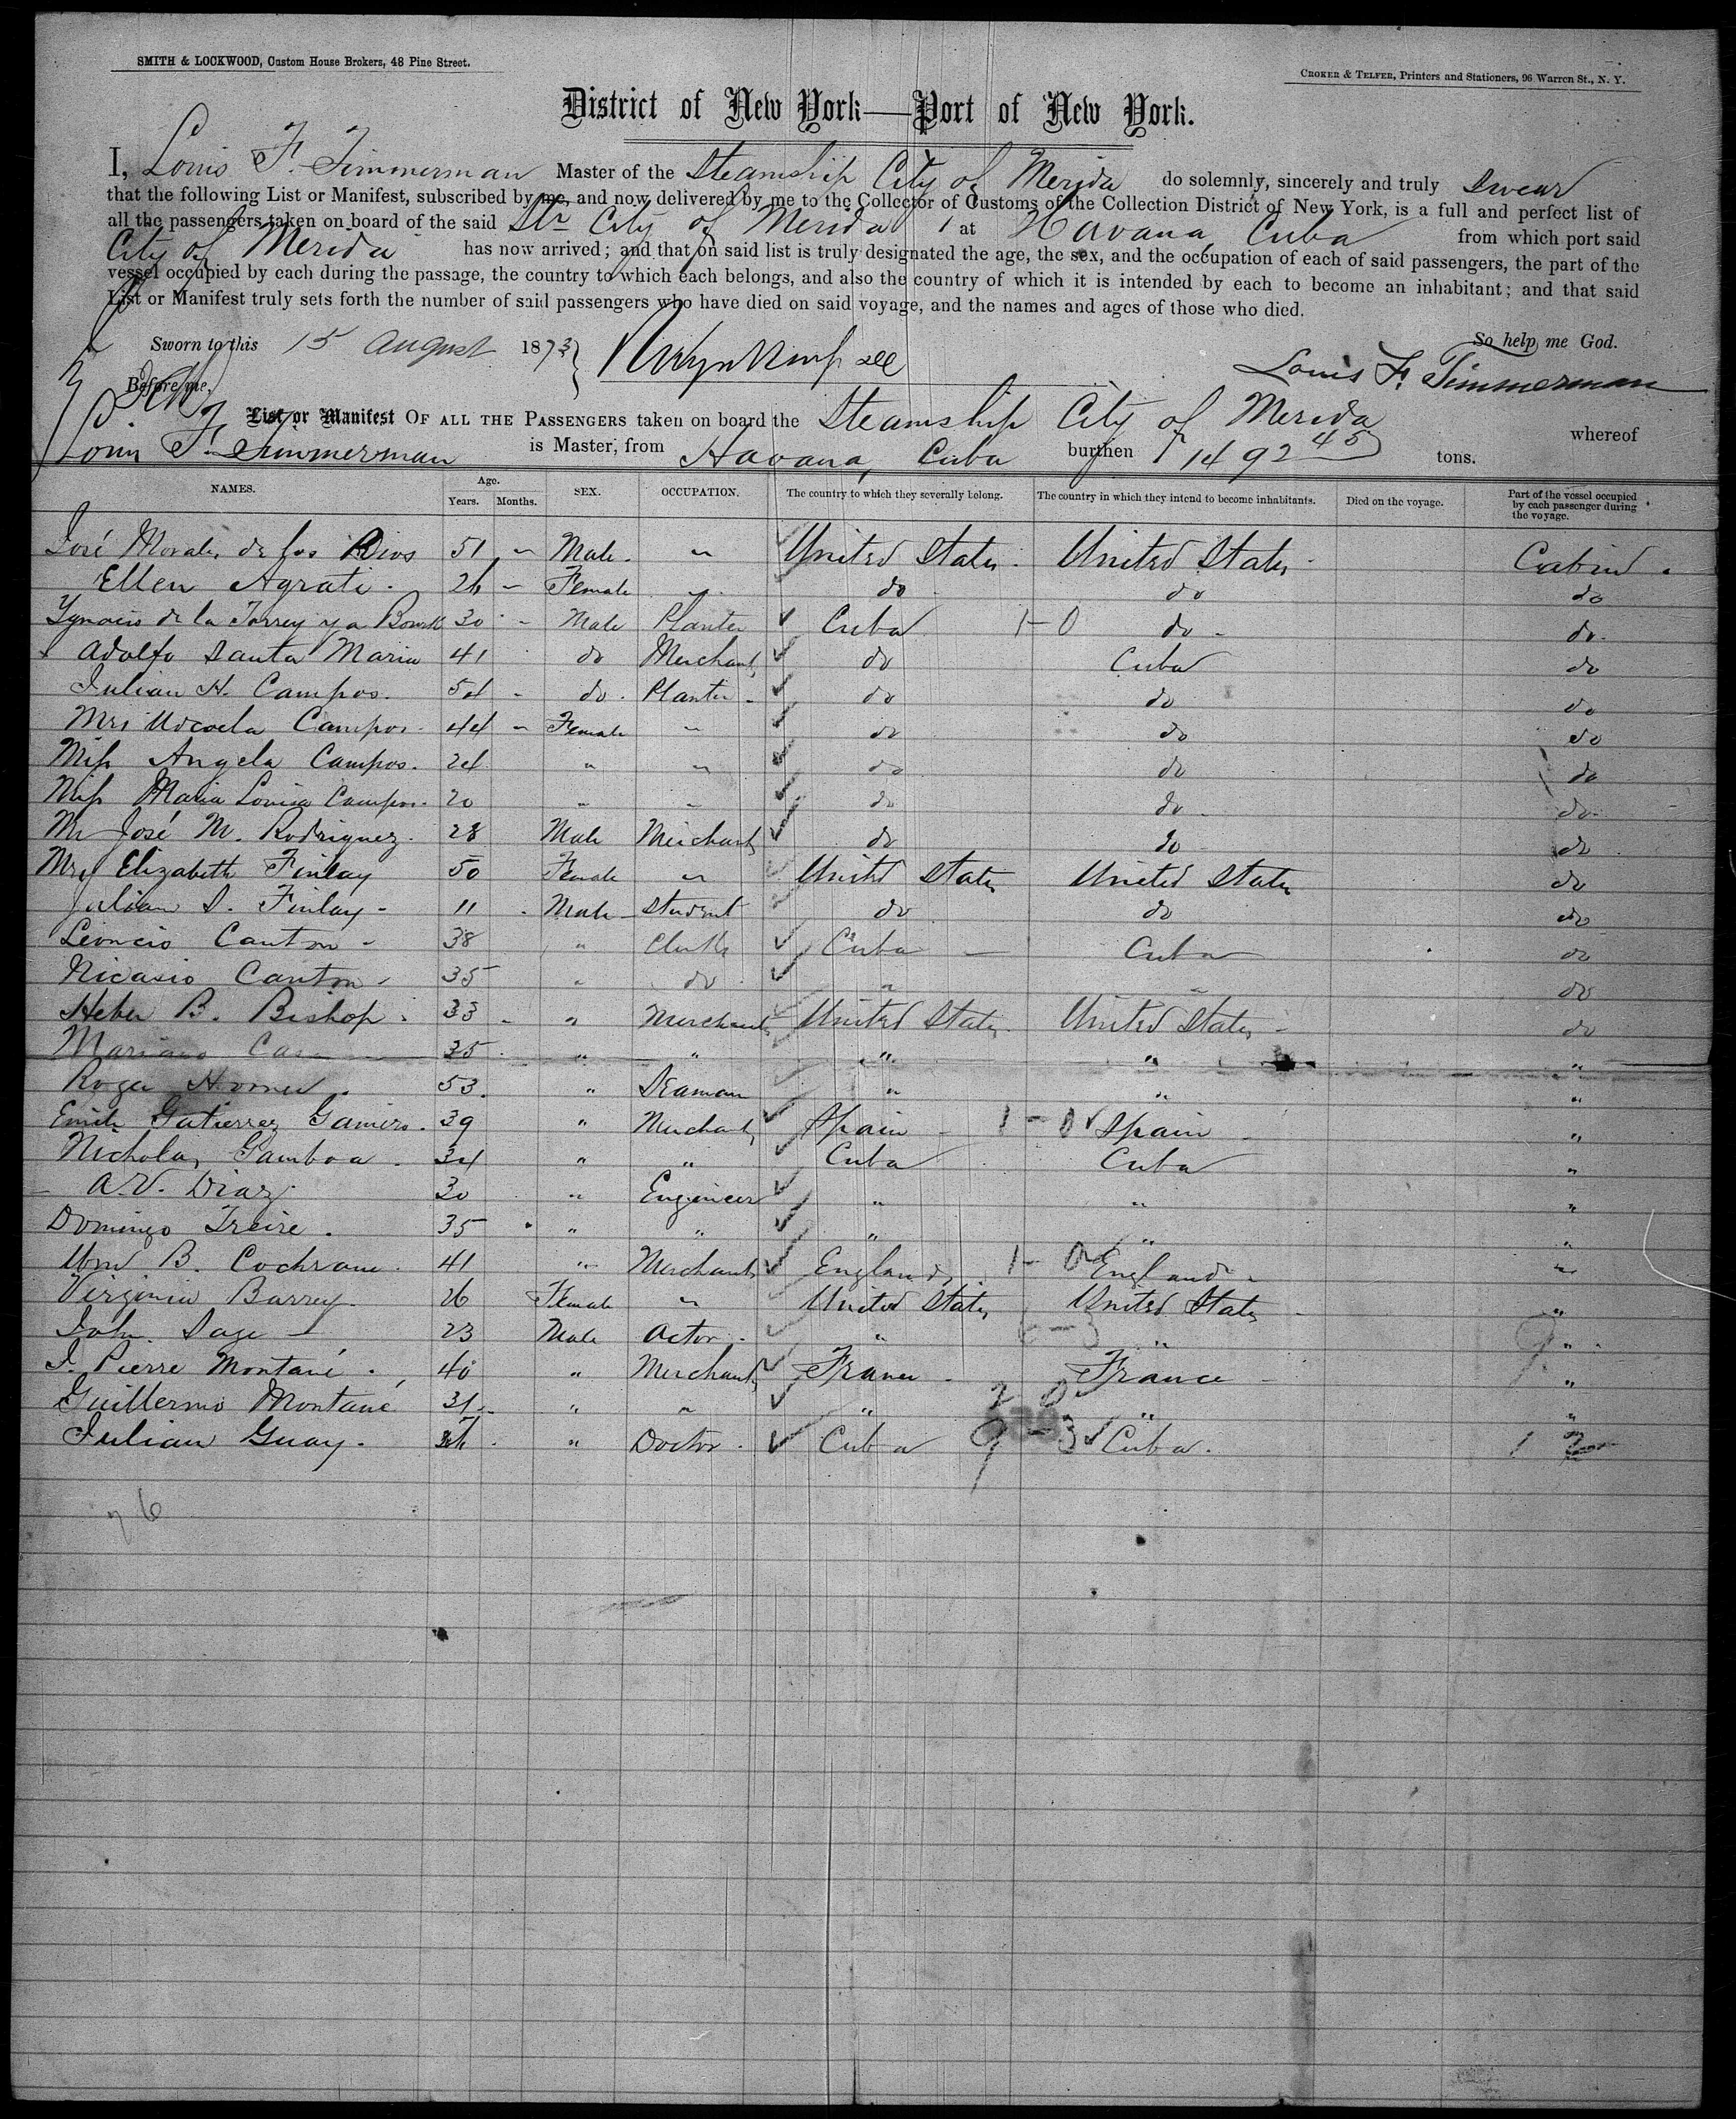 SMITH & LOCKWOOD, Custom House Brokers, 48 Pine Street.
CROKER & TELFER, Printers and Stationers, 96 Warren St., N. Y.
District of New York—Port of New York.
I, Louis F. Timmerman Master of the Steamship City of Merida do solemnly, sincerely and truly swear
that the following List or Manifest, subscribed by me, and now delivered by me to the Collector of Customs of the Collection District of New York, is a full and perfect list of
all the passengers taken on board of the said Str City of Merida at Havana, Cuba from which port said
City of Merida has now arrived; and that on said list is truly designated the age, the sex, and the occupation of each of said passengers, the part of the
vessel occupied by each during the passage, the country to which each belongs, and also the country of which it is intended by each to become an inhabitant; and that said
List or Manifest truly sets forth the number of said passengers who have died on said voyage, and the names and ages of those who died.
Sworn to this 15 August 1873 So help me God.
Before me, Louis F. Timmerman
List or Manifest OF ALL THE PASSENGERS taken on board the Steamship City of Merida whereof
Louis F. Timmerman is Master, from Havana, Cuba burthen 1492 45 tons.
NAMES. Age. Years. Months. SEX. OCCUPATION. The country to which they severally belong. The country in which they intend to become inhabitants. Died on the voyage. Part of the vessel occupied by each passenger during the voyage.
José Morales de los Dios 51 " Male " United States United States Cabin
Ellen Agrati 26 " Female " do do do
Ygnacio de la Torre y a 30 " Male Planter Cuba 1-0 do do
Adolfo Santa Maria 41 do Merchant do Cuba do
Julian H. Campos 54 " do Planter do do do
Mrs Campos 44 " Female " do do do
Miss Angela Campos 24 " " do do do
Miss Maria Louisa Campos 20 " " do do do
Mr José M. Rodriguez 28 Male Merchant do do do
Mrs Elizabeth Finlay 50 Female " United States United States do
Julian S. Finlay 11 Male Student do do do
Leoncio Canton 38 " Clerk Cuba Cuba do
Nicasio Canton 35 " do " " do
Heber B. Bishop 33 " " Merchant United States United States do
Mariano 35 " " " " "
Roger 53 " Seaman " " "
Emilio Gutierrez 39 " Merchant Spain 1-0 Spain "
Nicholas Gamboa 34 " " Cuba Cuba "
A.V. Diaz 30 " Engineer " " "
Domingo Freire 35 " " " " "
Wm B. Cochrane 41 " Merchant England 1-0 England "
Virginia Barrey 26 Female " United States United States "
John Sage 23 Male Actor " 6-3 " "
J. Pierre Montané 40 " Merchant France France "
Guillermo Montané 31 " " " 2 0 " "
Julian Guay " Doctor Cuba 9-3 Cuba
26